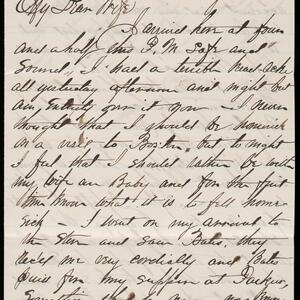 My Dear Wife
I arrived here at four
and a half this P.M. Safe and
Sound, I had a terrible head ache
all yesterday afternoon and night but
am entirely over it now I never
thought that I should be homesick
on a visit to Boston, but to night
I feel that I should rather be with
my wife an Baby and for the first
time know what it is to fell home
Sick I went on my arrival to
the Store and saw Bates. They
recd me very cordially and Bates
for my supper at Parkers,